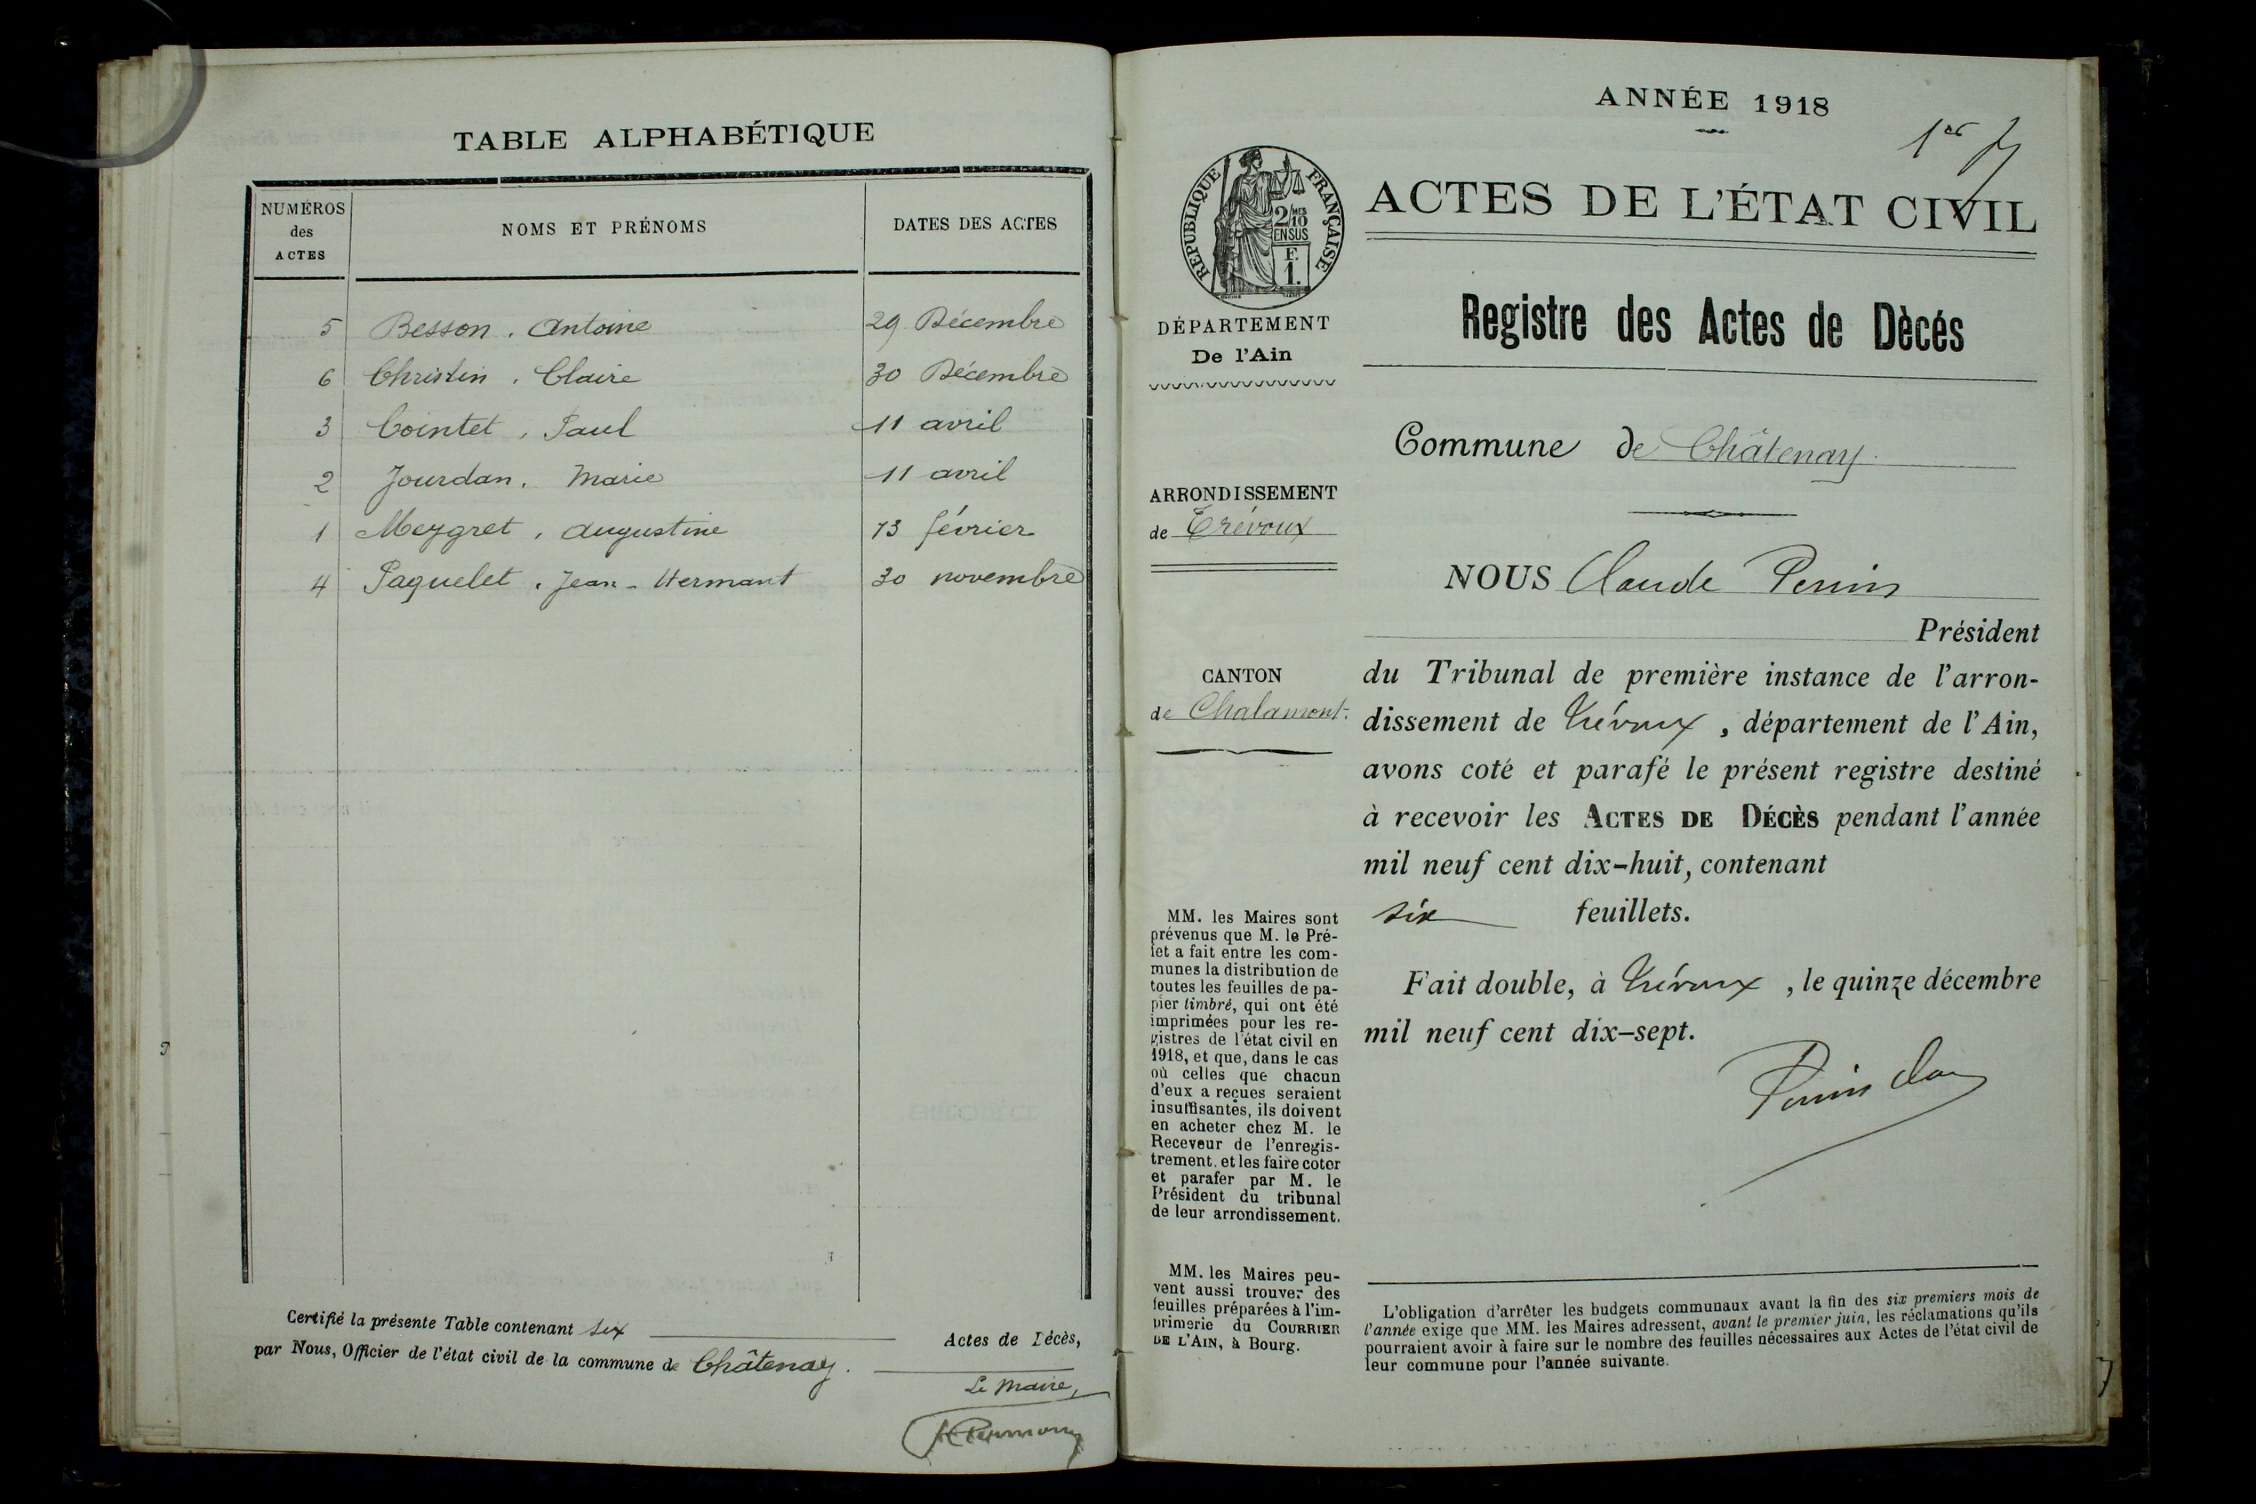 TABLE ALPHABÉTIQUE
NUMÉROS des ACTES
NOMS ET PRÉNOMS
DATES DES ACTES
5 Besson, Antoine 29 Décembre
6 Christin, Claire 30 Décembre
3 Cointet, Paul 11 avril
2 Jourdan, Marie 11 avril
1 Meygret, Augustine 13 février
4 Paquelet, Jean-Hermant 30 novembre
Certifié la présente Table contenant six Actes de Décès,
par Nous, Officier de l'état civil de la commune de Châtenay.
Le Maire,
ANNÉE 1918
1er
RÉPUBLIQUE FRANÇAISE
2/10MES
EN SUS
F.
1.
DÉPARTEMENT
De l'Ain
ARRONDISSEMENT
de Trévoux
CANTON
de Chalamont.
MM. les Maires sont
prévenus que M. le Pré-
fet a fait entre les com-
munes la distribution de
toutes les feuilles de pa-
pier timbré, qui ont été
imprimées pour les re-
gistres de l'état civil en
1918, et que, dans le cas
où celles que chacun
d'eux a reçues seraient
insuffisantes, ils doivent
en acheter chez M. le
Receveur de l'enregis-
trement, et les faire coter
et parafer par M. le
Président du tribunal
de leur arrondissement.
MM. les Maires peu-
vent aussi trouver des
feuilles préparées à l'im-
primerie du COURRIER
DE L'AIN, à Bourg.
ACTES DE L'ÉTAT CIVIL
Registre des Actes de Dècés
Commune de Châtenay
NOUS Claude Perrin
Président
du Tribunal de première instance de l'arron-
dissement de Trévoux, département de l'Ain,
avons coté et parafé le présent registre destiné
à recevoir les ACTES DE DÉCÈS pendant l'année
mil neuf cent dix-huit, contenant
six feuillets.
Fait double, à Trévoux, le quinze décembre
mil neuf cent dix-sept.
Perrin
L'obligation d'arrêter les budgets communaux avant la fin des six premiers mois de
l'année exige que MM. les Maires adressent, avant le premier juin, les réclamations qu'ils
pourraient avoir à faire sur le nombre des feuilles nécessaires aux Actes de l'état civil de
leur commune pour l'année suivante.